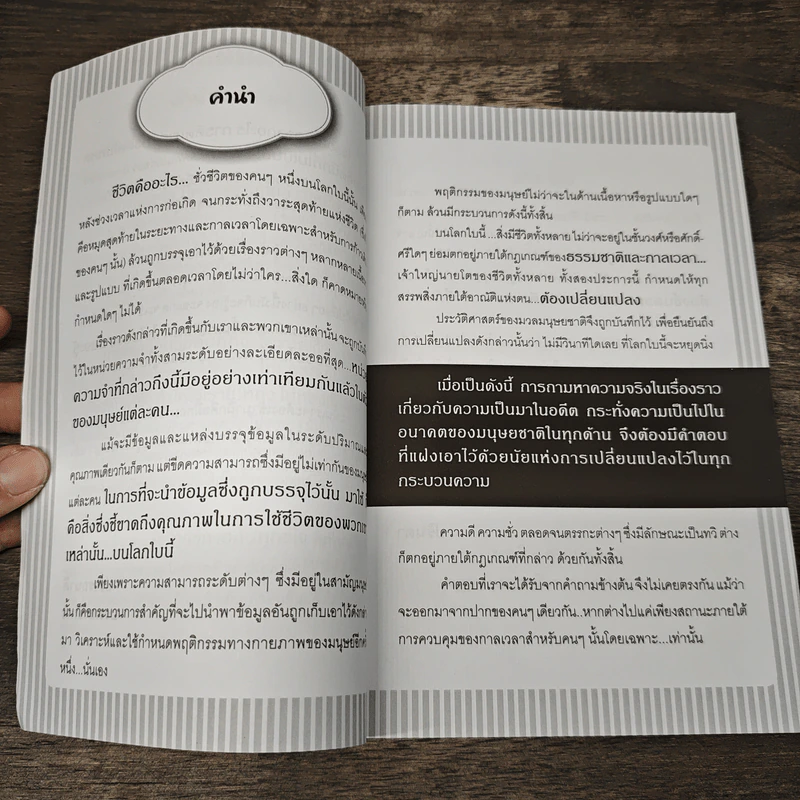 คำนำ
ชีวิตคืออะไร... ชั่วชีวิตของคนๆ หนึ่งบนโลกใบนี้นั้น
หลังช่วงเวลาแห่งการก่อเกิด จนกระทั่งถึงวาระสุดท้ายแห่งชีวิต
คือหมุดสุดท้ายในระยะทางและกาลเวลาโดยเฉพาะสำหรับการก้าว
ของคนๆ นั้น) ล้วนถูกบรรจุเอาไว้ด้วยเรื่องราวต่างๆ หลากหลายเนื้อ
และรูปแบบ ที่เกิดขึ้นตลอดเวลาโดยไม่ว่าใคร...สิ่งใด ก็คาดหมาย
กำหนดใดๆ ไม่ได้
เรื่องราวดังกล่าวที่เกิดขึ้นกับเราและพวกเขาเหล่านั้น จะถูก
ไว้ในหน่วยความจำทั้งสามระดับอย่างละเอียดละออที่สุด...
ความจำที่กล่าวถึงนี้มีอยู่อย่างเท่าเทียมกันแล้วใน
ของมนุษย์แต่ละคน...
แม้จะมีข้อมูลและแหล่งบรรจุข้อมูลในระดับปริมาณ
คุณภาพเดียวกันก็ตาม แต่ขีดความสามารถซึ่งมีอยู่ไม่เท่ากันของ
แต่ละคน ในการที่จะนำข้อมูลซึ่งถูกบรรจุไว้นั้น มาใช้
คือสิ่งซึ่งชี้ขาดถึงคุณภาพในการใช้ชีวิตของพวก
เหล่านั้น...บนโลกใบนี้
เพียงเพราะความสามารถระดับต่างๆ ซึ่งมีอยู่ในสามัญ
นั้น ก็คือกระบวนการสำคัญที่จะไปนำพาข้อมูลอันถูกเก็บเอาไว้
มา วิเคราะห์และใช้กำหนดพฤติกรรมทางกายภาพของมนุษย์อีก
หนึ่ง...นั่นเอง
พฤติกรรมของมนุษย์ไม่ว่าจะในด้านเนื้อหาหรือรูปแบบใดๆ
ก็ตาม ล้วนมีกระบวนการดังนี้ทั้งสิ้น
บนโลกใบนี้...สิ่งมีชีวิตทั้งหลาย ไม่ว่าจะอยู่ในชั้นวงศ์หรือศักดิ์-
ศรีใดๆ ย่อมตกอยู่ภายใต้กฎเกณฑ์ของธรรมชาติและกาลเวลา...
เจ้าใหญ่นายโตของชีวิตทั้งหลาย ทั้งสองประการนี้ กำหนดให้ทุก
สรรพสิ่งภายใต้อาณัติแห่งตน...ต้องเปลี่ยนแปลง
ประวัติศาสตร์ของมวลมนุษยชาติจึงถูกบันทึกไว้ เพื่อยืนยันถึง
การเปลี่ยนแปลงดังกล่าวนั้นว่า ไม่มีวินาทีใดเลย ที่โลกใบนี้จะหยุดนิ่ง
เมื่อเป็นดังนี้ การถามหาความจริงในเรื่องราว
เกี่ยวกับความเป็นมาในอดีต กระทั่งความเป็นไปใน
อนาคตของมนุษยชาติในทุกด้าน จึงต้องมีคำตอบ
ที่แฝงเอาไว้ด้วยนัยแห่งการเปลี่ยนแปลงไว้ในทุก
กระบวนความ
ความดี ความชั่ว ตลอดจนตรรกะต่างๆ ซึ่งมีลักษณะเป็นทวิ ต่าง
ก็ตกอยู่ภายใต้กฎเกณฑ์ที่กล่าว ด้วยกันทั้งสิ้น
คำตอบที่เราจะได้รับจากคำถามข้างต้น จึงไม่เคยตรงกัน แม้ว่า
จะออกมาจากปากของคนๆ เดียวกัน..หากต่างไปแค่เพียงสถานะภายใต้
การควบคุมของกาลเวลาสำหรับคนๆ นั้นโดยเฉพาะ...เท่านั้น